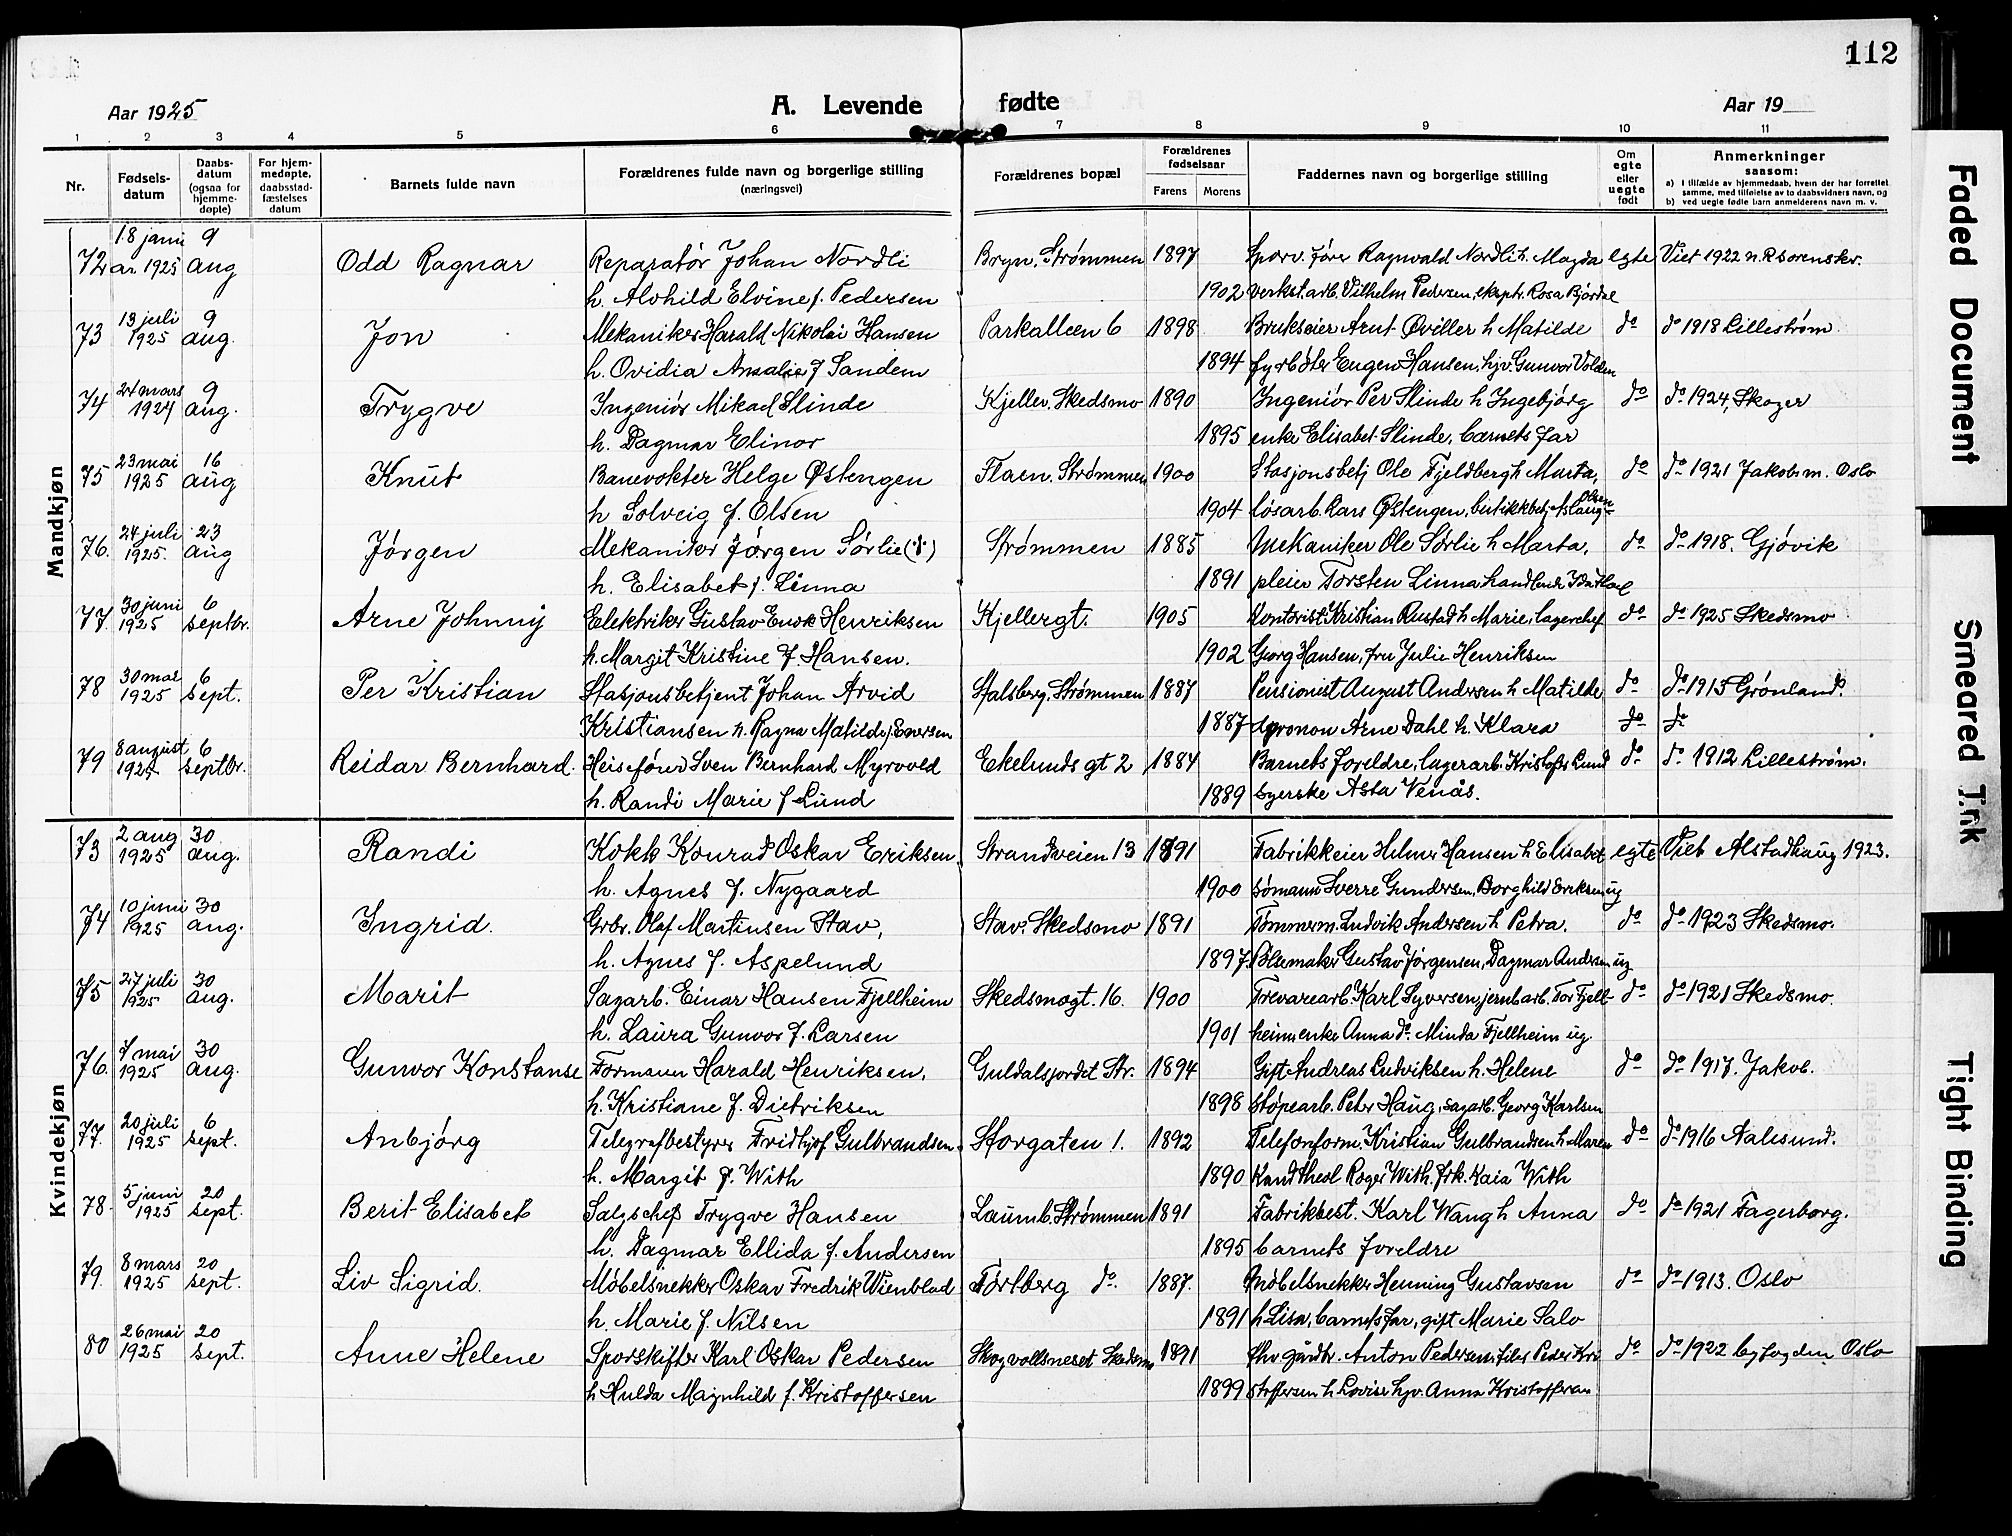 112
Aar 1925 A. Levende fødte Aar 19
1 2 3 4 5 6 7 8 9 10 11
Nr. Fødsels-datum Daabs-datum (ogsaa for hjemme-døpte) For hjem-medøpte, daabsstad-fæstelses datum Barnets fulde navn Forældrenes fulde navn og borgerlige stilling (næringsvei) Forældrenes bopæl Forældrenes fødselsaar Farens Morens Faddernes navn og borgerlige stilling Om egte eller uegte født Anmerkninger saasom:
a) I tilfælde av hjemmedaab, hvem der har forrettet samme, med tilføielse av to daabsvidners navn, og
b) ved uegte fødte barn anmelderens navn m. v.
Mandkjøn
72 18 janu ar. 1925 9 aug Odd Ragnar Reparatør Johan Nordli Bryn. Strømmen 1897 Sporv. fører Ragnvald Nordli h. Magda egte Viet 1922 n. R sorenskr.
h. Alvhild Elvine f. Pedersen 1902 verkst.arb. Vilhelm Pedersen, eksptr. Rosa Bjørdal
73 13 juli 1925 9 aug. Jon Mekaniker Harald Nikolai Hansen Parkalleen 6 1898 Brukseier Arnt Øviller h Matilde do do 1918 Lillestrøm
h. Ovidia Amalie f Sandem 1894 fyrbøter Eugen Hansen, hjv. Gunvor Volden
74 24 mars 1924 9 aug. Trygve Ingeniør Mikael Slinde Kjeller. Skedsmo 1890 Ingeniør Per Slinde h Ingebjørg do do 1924, Skoger
h. Dagmar Elinor 1895 enke Elisabet Slinde, barnets far
75 23 mai 1925 16 aug Knut Banevokter Helge Østengen Flaen. Strømmen 1900 Stasjonsbetj Ole Fjeldberg h Marta, do do 1921 Jakob m. Oslo
h Solveig f. Olsen 1904 løsarb. Lars Østengen, butikkbetj Aslaug Olsen
76. 24 juli 1925. 23 aug Jørgen Mekaniker Jørgen Sørlie (†) Strømmen 1885 Mekaniker Ole Sørlie h Marta, do do 1918. Gjøvik
h. Elisabet f. Linna 1891 pleier Torsten Linna handlende
77. 30 juni 1925 6 septbr. Arne Johnny Elektriker Gustav Enok Henriksen Kjellergt. 1905 Kontorist Kristian Rustad h Marie, lagerchef do do 1925 Skedsmo
h. Margit Kristine f. Hansen. 1902 Georg Hansen, fru Julie Henriksen
78 30 mai 1925 6 sept. Per Kristian Stasjonsbetjent Johan Arvid Stalsberg. Strømmen 1887 Pensionist August Andersen h Matilde do do 1915 Grønland.
Kristiansen h. Ragna Matilde f Enersen 1887 Arne Dahl h. Klara do do
79 8 august 1925 6 septbr. Reidar Bernhard. Heisefører Sven Bernhard Myrvold Ekelunds gt 2 1884 Barnets foreldre, lagerarb. Kristoffer Lund do do 1912 Lillestrøm.
h. Randi Marie f Lund 1889 syerske Asta Venås.
Kvindekjøn
73 2 aug 1925 30 aug. Randi Kokk Konrad Oskar Eriksen Strandveien 13 1891 Fabrikkeier Hilmer Hansen h Elisabet egte Viet Alstadhaug 1923.
h. Agnes f. Nygaard 1900 sømann Sverre Gundersen, Borghild Eriksen ug
74 10 juni 1925 30 aug. Ingrid. Gbr. Olaf Martinsen Stav, Stav. Skedsmo 1891 Tømmerm. Ludvik Andersen h Petra. do do 1923 Skedsmo.
h. Agnes f. Aspelund 1897. Pølsemaker Gustav Jørgensen, Dagmar Andersen ug
75 27 juli 1925 30 aug. Marit Sagarb. Einar Hansen Fjellheim Skedsmogt. 16. 1900 Trevarearb. Karl Syversen, jernbarb. Tor Fjell- do do 1921 Skedsmo.
h. Laura Gunvor f. Larsen 1901 heim enke Anna do. Minda Fjellheim ug.
76. 7 mai 1925 30 aug. Gunvor Konstanse Formann Harald Henriksen, Guldalsjordet Str. 1894 Gift Andreas Ludviksen h. Helene do do 1917. Jakob.
h. Kristiane f. Dietriksen 1898 støpearb. Peter Haug, sagarb. Georg Karlsen
77. 20 juli 1925 6 sept. Anbjørg Telegrafbestyrer Fridtjof Gulbrandsen Storgaten 1. 1892 Telefonform. Kristian Gulbrandsen h Maren do do 1916 Aalesund.
h. Margit f. With 1890 Kand theol Roger With, frk. Kaia With
78. 5 juni 1925 20 sept. Berit Elisabet Salgschef Trygve Hansen Laumb. Strømmen 1891 Fabrikbest. Karl Wang h Anna do do 1921 Fagerborg.
h. Dagmar Ellida f. Andersen 1895 barnets foreldre
79. 8 mars 1925 20 sept. Liv Sigrid. Møbelsnekker Oskar Fredrik Wienblad Tørlberg do. 1887. Møbelsnekker Henning Gustavsen do do 1913. Oslo
h. Marie f. Nilsen 1891 h Lisa, barnets far, gift Marie Salo
80 26 mai 1925 20 sept. Anne Helene Sporskifter Karl Oskar Pedersen Skogvollsneset Skedsmo 1891 fhv. gårdbr. Anton Pedersen, filer Peder Kri do do 1922 byfogden Oslo
h Hulda Magnhild f. Kristoffersen 1899 stoffersen h Lovise hjv. Anna Kristoffersen
Faded Document
Smeared Ink
Tight Binding